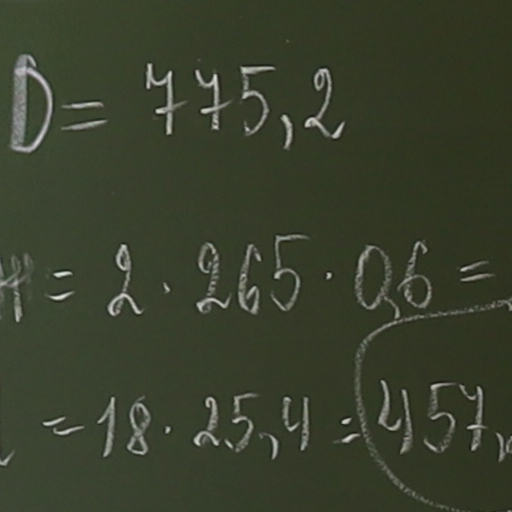 D = 775,2
= 2 · 265 · 0,6 =
= 18 · 25,4 = 457,